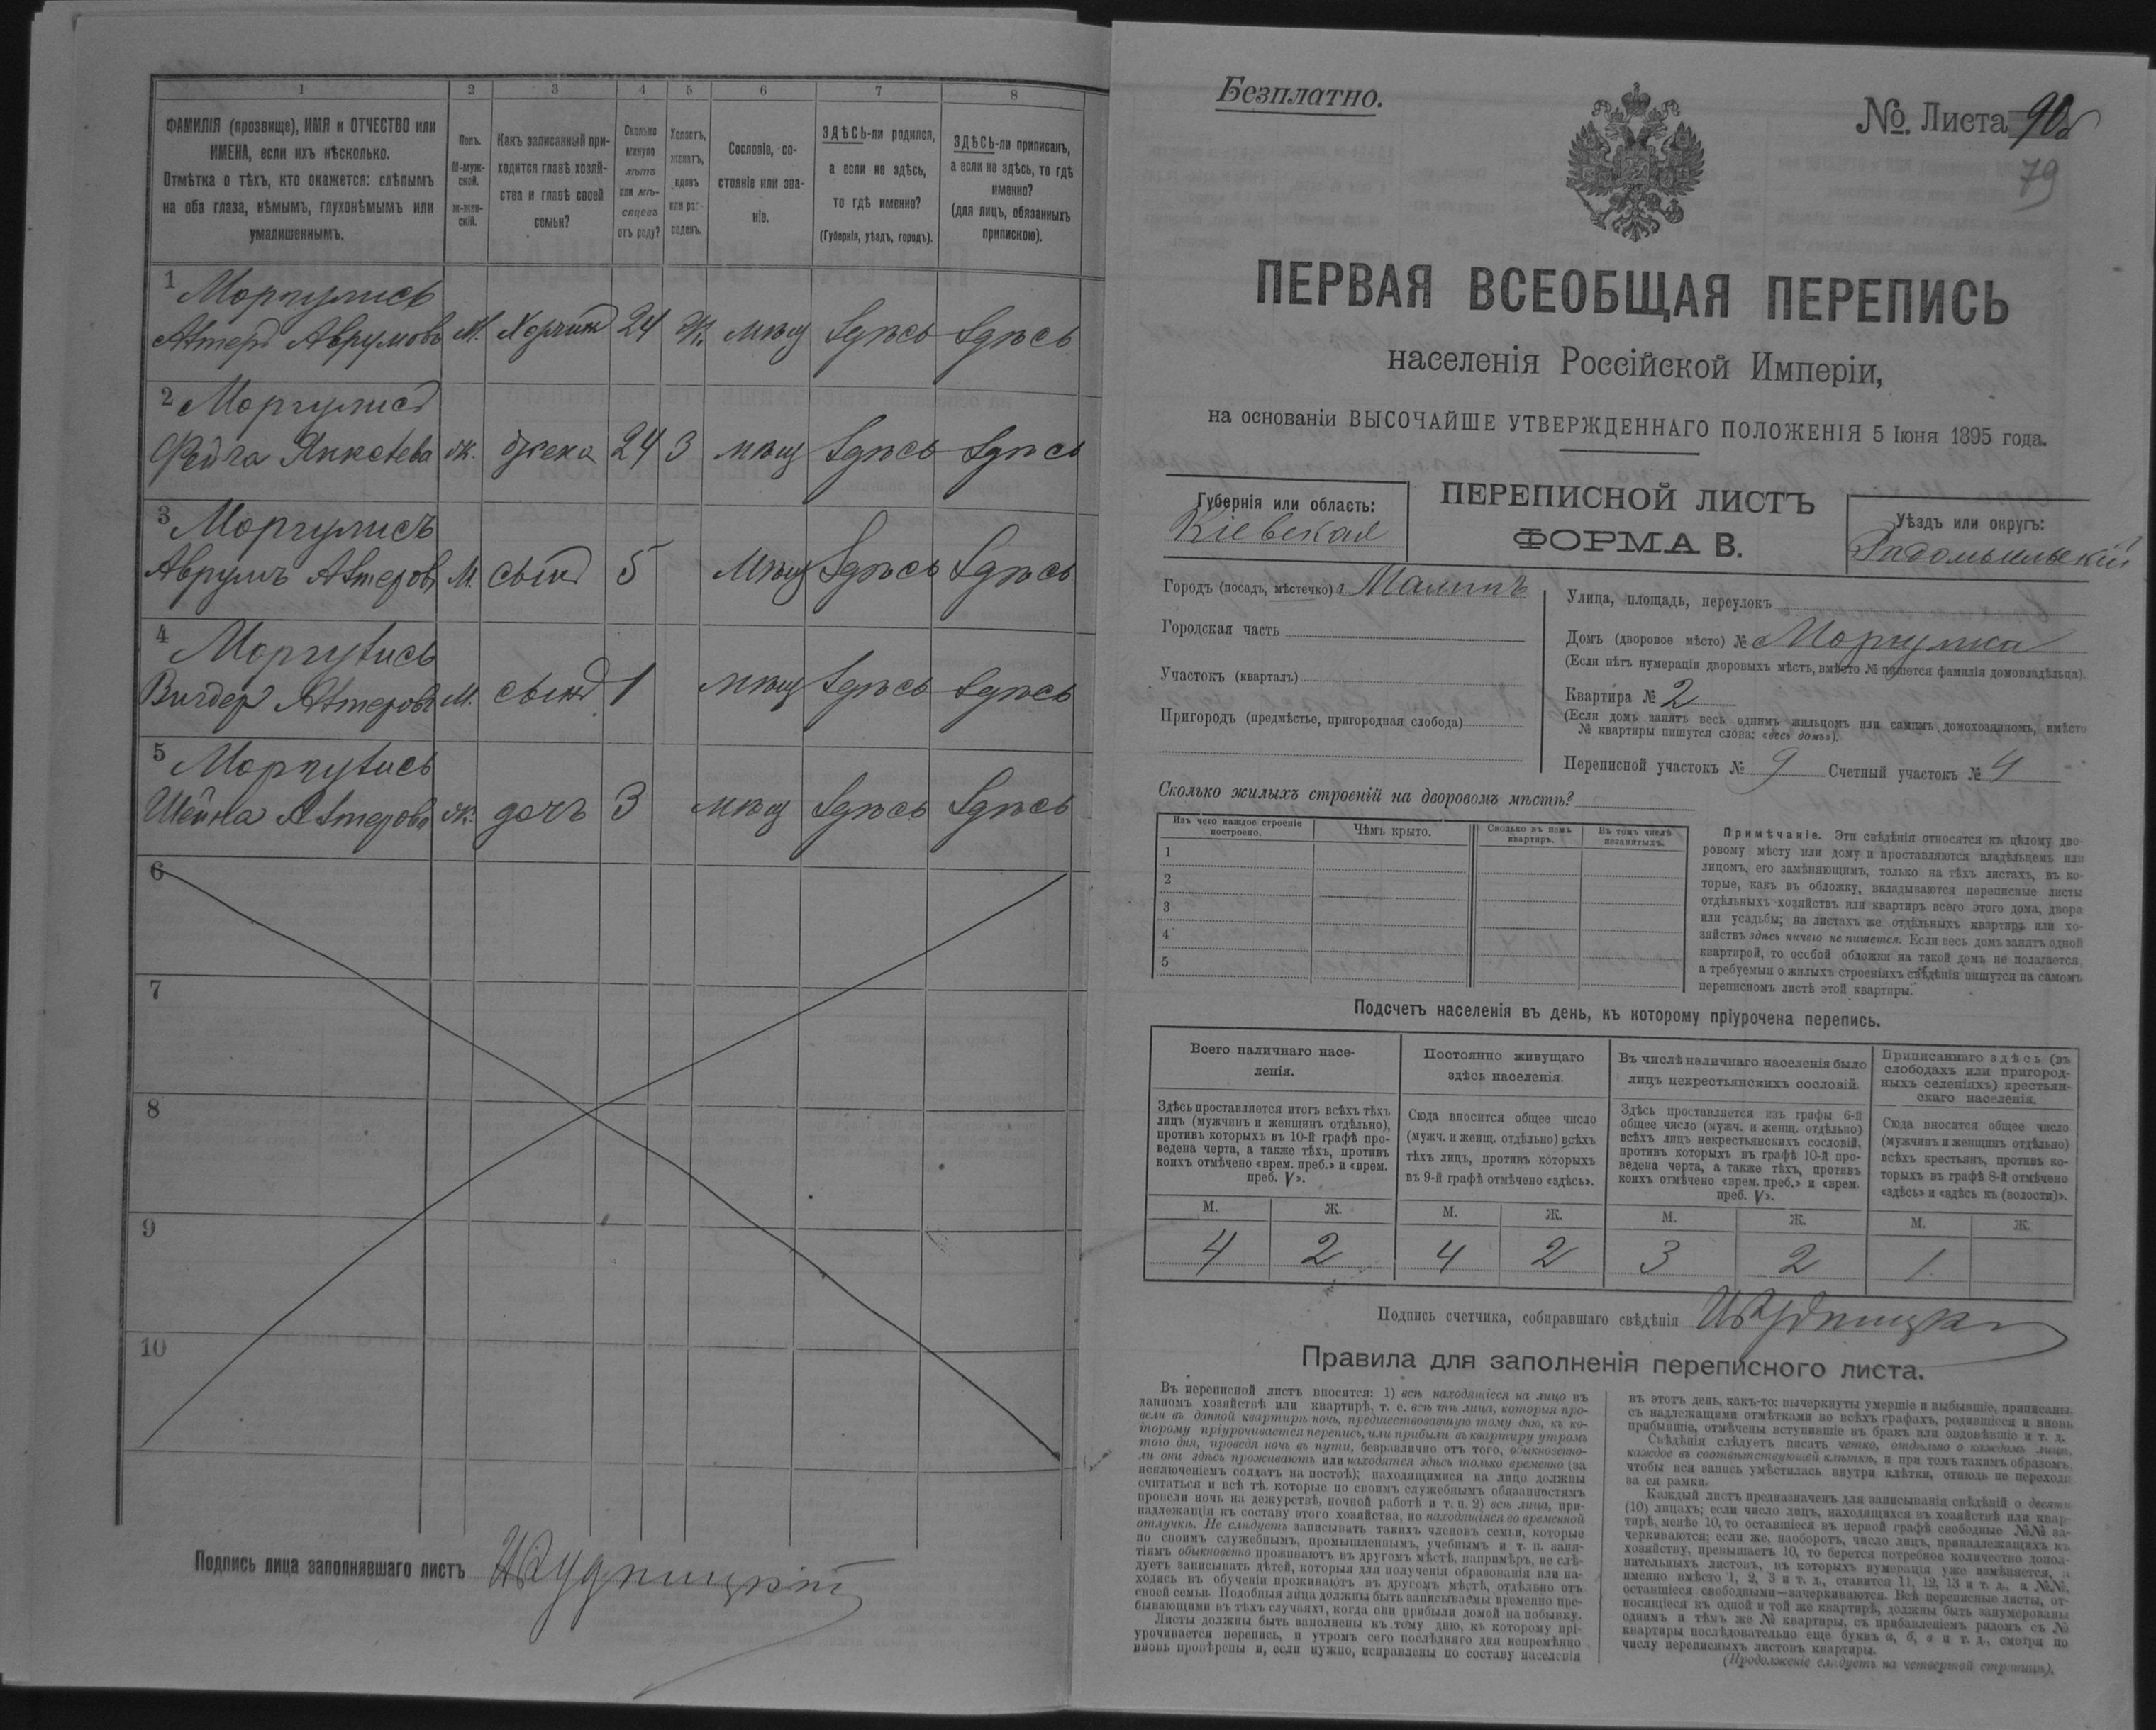 1 2 3 4 5 6 7 8
ФАМИЛІЯ (прозвище), ИМЯ и ОТЧЕСТВО или
ИМЕНА, если ихъ нѣсколько.
Отмѣтка о тѣхъ, кто окажется: слѣпымъ
на оба глаза, нѣмымъ, глухонѣмымъ или
умалишеннымъ.
Полъ.
М-муж-
ской.
ж-жен-
скій.
Какъ записанный при-
ходится главѣ хозяй-
ства и главѣ своей
семьи?
Сколько
минуло
лѣтъ
или мѣ-
сяцевъ
отъ роду?
Холостъ,
женатъ,
вдовъ
или раз-
веденъ.
Сословіе, со-
стояніе или зва-
ніе.
ЗДѢСЬ-ли родился,
а если не здѣсь,
то гдѣ именно?
(Губернія, уѣздъ, городъ).
ЗДѢСЬ-ли приписанъ,
а если не здѣсь, то гдѣ
именно?
(для лицъ, обязанныхъ
припискою).
1 Моргулисъ
Аврумовъ М. 24 Ж. мѣщ Здѣсь Здѣсь
2 Моргулисъ
Янкелева ж. 24 З мѣщ Здѣсь Здѣсь
3 Моргулисъ
Аврумъ М. сынъ 5 Мѣщ Здѣсь Здѣсь
4 Моргулисъ
М. сынъ 1 мѣщ Здѣсь Здѣсь
5 Моргулисъ
Шейна ж. дочь 3 мѣщ Здѣсь Здѣсь
6
7
8
9
10
Подпись лица заполнявшаго листъ
Безплатно.
№. Листа 90б
79
ПЕРВАЯ ВСЕОБЩАЯ ПЕРЕПИСЬ
населенія Россійской Имперіи,
на основаніи ВЫСОЧАЙШЕ УТВЕРЖДЕННАГО ПОЛОЖЕНІЯ 5 Іюня 1895 года.
Губернія или область:
Кіевская
ПЕРЕПИСНОЙ ЛИСТЪ
ФОРМА В.
Уѣздъ или округъ:
Радомысльскій
Городъ (посадъ, мѣстечко) Малинъ
Городская часть
Участокъ (кварталъ)
Пригородъ (предмѣстье, пригородная слобода)
Улица, площадь, переулокъ
Домъ (дворовое мѣсто) № Моргулиса
(Если нѣтъ нумераціи дворовыхъ мѣстъ, вмѣсто № пишется фамилія домовладѣльца).
Квартира № 2
(Если домъ занятъ весь однимъ жильцомъ или самимъ домохозяиномъ, вмѣсто
№ квартиры пишутся слова: «весь домъ»).
Переписной участокъ № 9 Счетный участокъ № 4
Сколько жилыхъ строеній на дворовомъ мѣстѣ?
Изъ чего каждое строеніе
построено.
Чѣмъ крыто.
Сколько въ немъ
квартиръ.
Въ томъ числѣ
незанятыхъ.
1
2
3
4
5
Примѣчаніе. Эти свѣдѣнія относятся къ цѣлому дво-
ровому мѣсту или дому и проставляются владѣльцемъ или
лицомъ, его замѣняющимъ, только на тѣхъ листахъ, въ ко-
торые, какъ въ обложку, вкладываются переписные листы
отдѣльныхъ хозяйствъ или квартиръ всего этого дома, двора
или усадьбы; на листахъ же отдѣльныхъ квартиръ или хо-
зяйствъ здѣсь ничего не пишется. Если весь домъ занятъ одной
квартирой, то особой обложки на такой домъ не полагается,
а требуемыя о жилыхъ строеніяхъ свѣдѣнія пишутся на самомъ
переписномъ листѣ этой квартиры.
Подсчетъ населенія въ день, къ которому пріурочена перепись.
Всего наличнаго насе-
ленія.
Здѣсь проставляется итогъ всѣхъ тѣхъ
лицъ (мужчинъ и женщинъ отдѣльно),
противъ которыхъ въ 10-й графѣ про-
ведена черта, а также тѣхъ, противъ
коихъ отмѣчено «врем. преб.» и «врем.
преб. V».
Постоянно живущаго
здѣсь населенія.
Сюда вносится общее число
(мужч. и женщ. отдѣльно) всѣхъ
тѣхъ лицъ, противъ которыхъ
въ 9-й графѣ отмѣчено «здѣсь».
Въ числѣ наличнаго населенія было
лицъ некрестьянскихъ сословій.
Здѣсь проставляется изъ графы 6-й
общее число (мужч. и женщ. отдѣльно)
всѣхъ лицъ некрестьянскихъ сословій,
противъ которыхъ въ графѣ 10-й про-
ведена черта, а также тѣхъ, противъ
коихъ отмѣчено «врем. преб.» и «врем.
преб. V».
Приписаннаго здѣсь (въ
слободахъ или пригород-
ныхъ селеніяхъ) крестьян-
скаго населенія.
Сюда вносится общее число
(мужчинъ и женщинъ отдѣльно)
всѣхъ крестьянъ, противъ ко-
торыхъ въ графѣ 8-й отмѣчено
«здѣсь» и «здѣсь къ (волости)».
М. Ж. М. Ж. М. Ж. М. Ж.
4 2 4 2 3 2 1
Подпись счетчика, собиравшаго свѣдѣнія
Правила для заполненія переписного листа.
Въ переписной листъ вносятся: 1) всѣ находящіеся на лицо въ
данномъ хозяйствѣ или квартирѣ, т. е. всѣ тѣ лица, которыя про-
вели въ данной квартирѣ ночь, предшествовавшую тому дню, къ ко-
торому пріурочивается перепись, или прибыли въ квартиру утромъ
того дня, проведя ночь въ пути, безразлично отъ того, обыкновенно-
ли они здѣсь проживаютъ или находятся здѣсь только временно (за
исключеніемъ солдатъ на постоѣ); находящимися на лицо должны
считаться и всѣ тѣ, которые по своимъ служебнымъ обязанностямъ
провели ночь на дежурствѣ, ночной работѣ и т. п. 2) всѣ лица, при-
надлежащія къ составу этого хозяйства, но находящіяся во временной
отлучкѣ. Не слѣдуетъ записывать такихъ членовъ семьи, которые
по своимъ служебнымъ, промышленнымъ, учебнымъ и т. п. заня-
тіямъ обыкновенно проживаютъ въ другомъ мѣстѣ, напримѣръ, не слѣ-
дуетъ записывать дѣтей, которыя для полученія образованія или на-
ходясь въ обученіи проживаютъ въ другомъ мѣстѣ, отдѣльно отъ
своей семьи. Подобныя лица должны быть записываемы временно пре-
бывающими въ тѣхъ случаяхъ, когда они прибыли домой на побывку.
Листы должны быть заполнены къ тому дню, къ которому прі-
урочивается перепись, и утромъ сего послѣдняго дня непремѣнно
вновь провѣрены и, если нужно, исправлены по составу населенія
въ этотъ день, какъ-то: вычеркнуты умершіе и выбывшіе, приписаны
съ надлежащими отмѣтками во всѣхъ графахъ, родившіеся и вновь
прибывшіе, отмѣчены вступившіе въ бракъ или овдовѣвшіе и т. д.
Свѣдѣнія слѣдуетъ писать четко, отдѣльно о каждомъ лицѣ,
каждое въ соотвѣтствующей клѣткѣ, и при томъ такимъ образомъ,
чтобы вся запись умѣстилась внутри клѣтки, отнюдь не переходя
за ея рамки.
Каждый листъ предназначенъ для записыванія свѣдѣній о десяти
(10) лицахъ; если число лицъ, находящихся въ хозяйствѣ или квар-
тирѣ, менѣе 10, то оставшіеся въ первой графѣ свободные №№ за-
черкиваются; если же, наоборотъ, число лицъ, принадлежащихъ къ
хозяйству, превышаетъ 10, то берется потребное количество допол-
нительныхъ листовъ, въ которыхъ нумерація уже измѣняется, а
именно вмѣсто 1, 2, 3 и т. д., ставится 11, 12, 13 и т. д., а №№,
оставшіеся свободными—зачеркиваются. Всѣ переписные листы, от-
носящіеся къ одной и той же квартирѣ, должны быть занумерованы
однимъ и тѣмъ же № квартиры, съ прибавленіемъ рядомъ съ №
квартиры послѣдовательно еще буквъ а, б, в и т. д., смотря по
числу переписныхъ листовъ квартиры.
(Продолженіе слѣдуетъ на четвертой страницѣ).